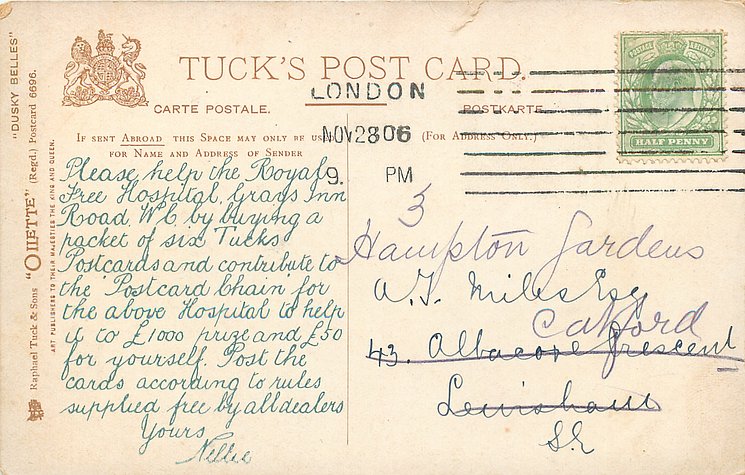 TUCK'S POST CARD.
CARTE POSTALE.
POSTKARTE.
IF SENT ABROAD THIS SPACE MAY ONLY BE USED
FOR NAME AND ADDRESS OF SENDER
(FOR ADDRESS ONLY.)
LONDON
NOV 28 06
9. PM
POSTAGE REVENUE
HALF PENNY
"DUSKY BELLES"
Raphael Tuck & Sons "OILETTE" (Regd.) Postcard 6696.
ART PUBLISHERS TO THEIR MAJESTIES THE KING AND QUEEN.
Please help the Royal
Free Hospital, Grays Inn
Road, W.C. by buying a
packet of six Tucks
Postcards and contribute to
the "Postcard Chain" for
the above Hospital to help
it to £1000 prize and £50
for yourself. Post the
cards according to rules
supplied free by all dealers
Yours
Nellie
3
Hampton Gardens
A.J. Miles Esq
Catford
43. Albacore Crescent
Lewisham
S.E